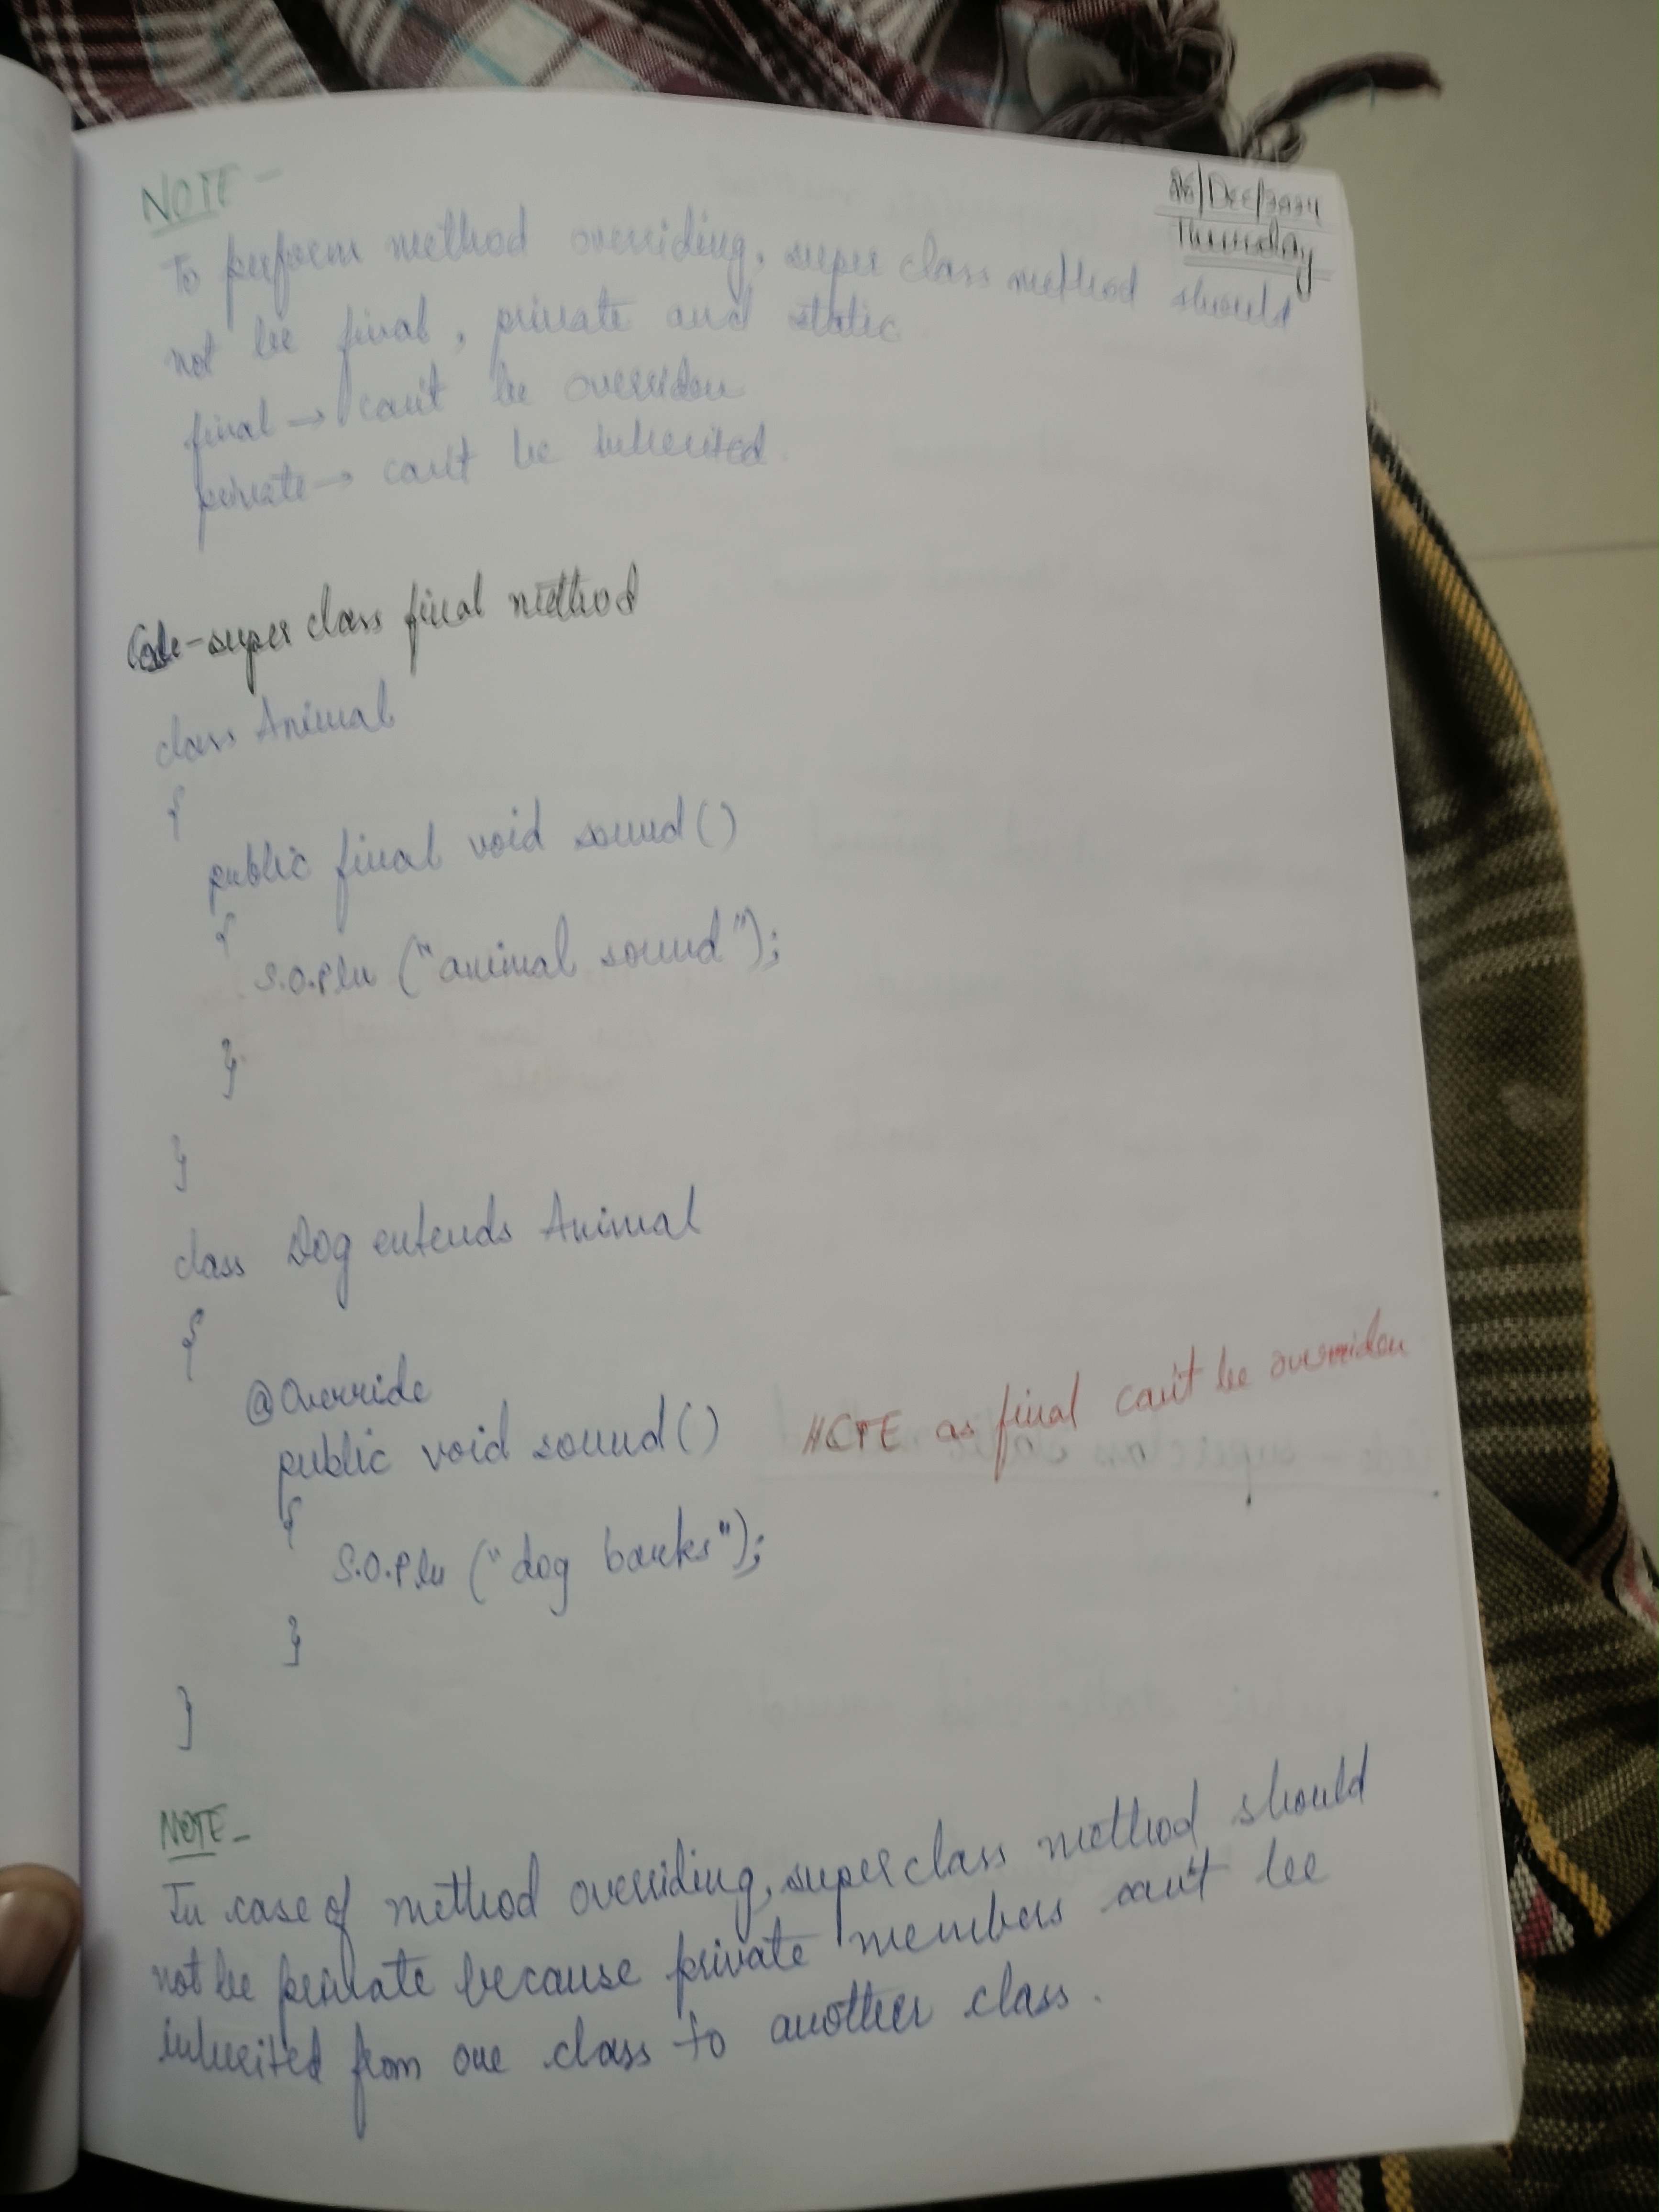 NOTE -
26/Dec/2024
Thursday
To perform method overriding, super class method should
not be final, private and static.
final → can't be overriden
private → can't be inherited.
Code - super class final method
class Animal
{
public final void sound()
{
S.O.Pln ("animal sound");
}
}
class Dog extends Animal
{
@Override
public void sound() // CTE as final can't be overriden
{
S.O.Pln ("dog barks");
}
}
NOTE -
In case of method overriding, super class method should
not be private because private members can't be
inherited from one class to another class.